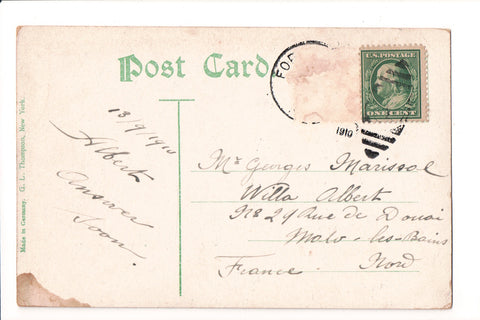 Post Card
FOR
1910
U.S. POSTAGE
ONE CENT
Made in Germany. G. L. Thompson, New York.
13/9/1910
Albert
Answer
Soon.
Mr Georges Marissal
Willa Albert
No 24 Rue de Douai
Malo-les-Bains
Nord
France